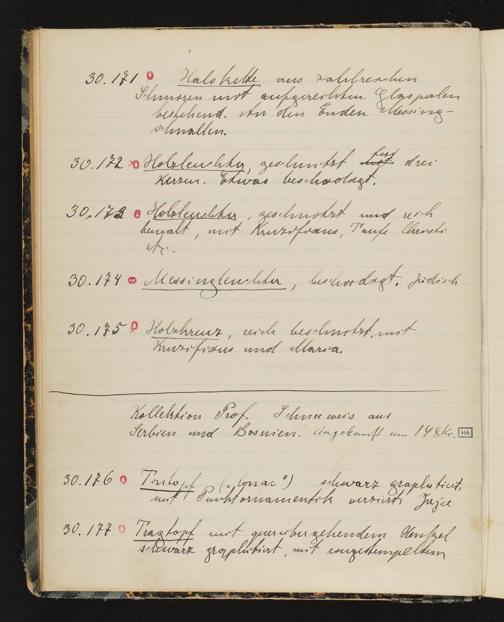 30.171 Halskette aus zahlreichen
Schnüren mit aufgereihten Glasperlen
bestehend. An den Enden Messing-
schnallen.
30.172 Holzleuchter, geschnitzt für drei
Kerzen. Etwas beschädigt.
30.173 Holzleuchter, geschnitzt und reich
bemalt, mit Kruzifixus, Taufe Christi
etc.
30.174 Messingleuchter, beschädigt. Jüdisch
30.175 Holzkreuz, reich beschnitzt, mit
Kruzifixus und Maria.
Kollektion Prof. Schneeweis aus
Serbien und Bosnien. Angekauft um 148 Kr. HA
30.176 ("lonac") schwarz graphitiert,
mit Punktornamentik verziert. Jajce
30.177 Tragtopf mit querübergehendem Henkel
schwarz graphitiert, mit eingestempeltem